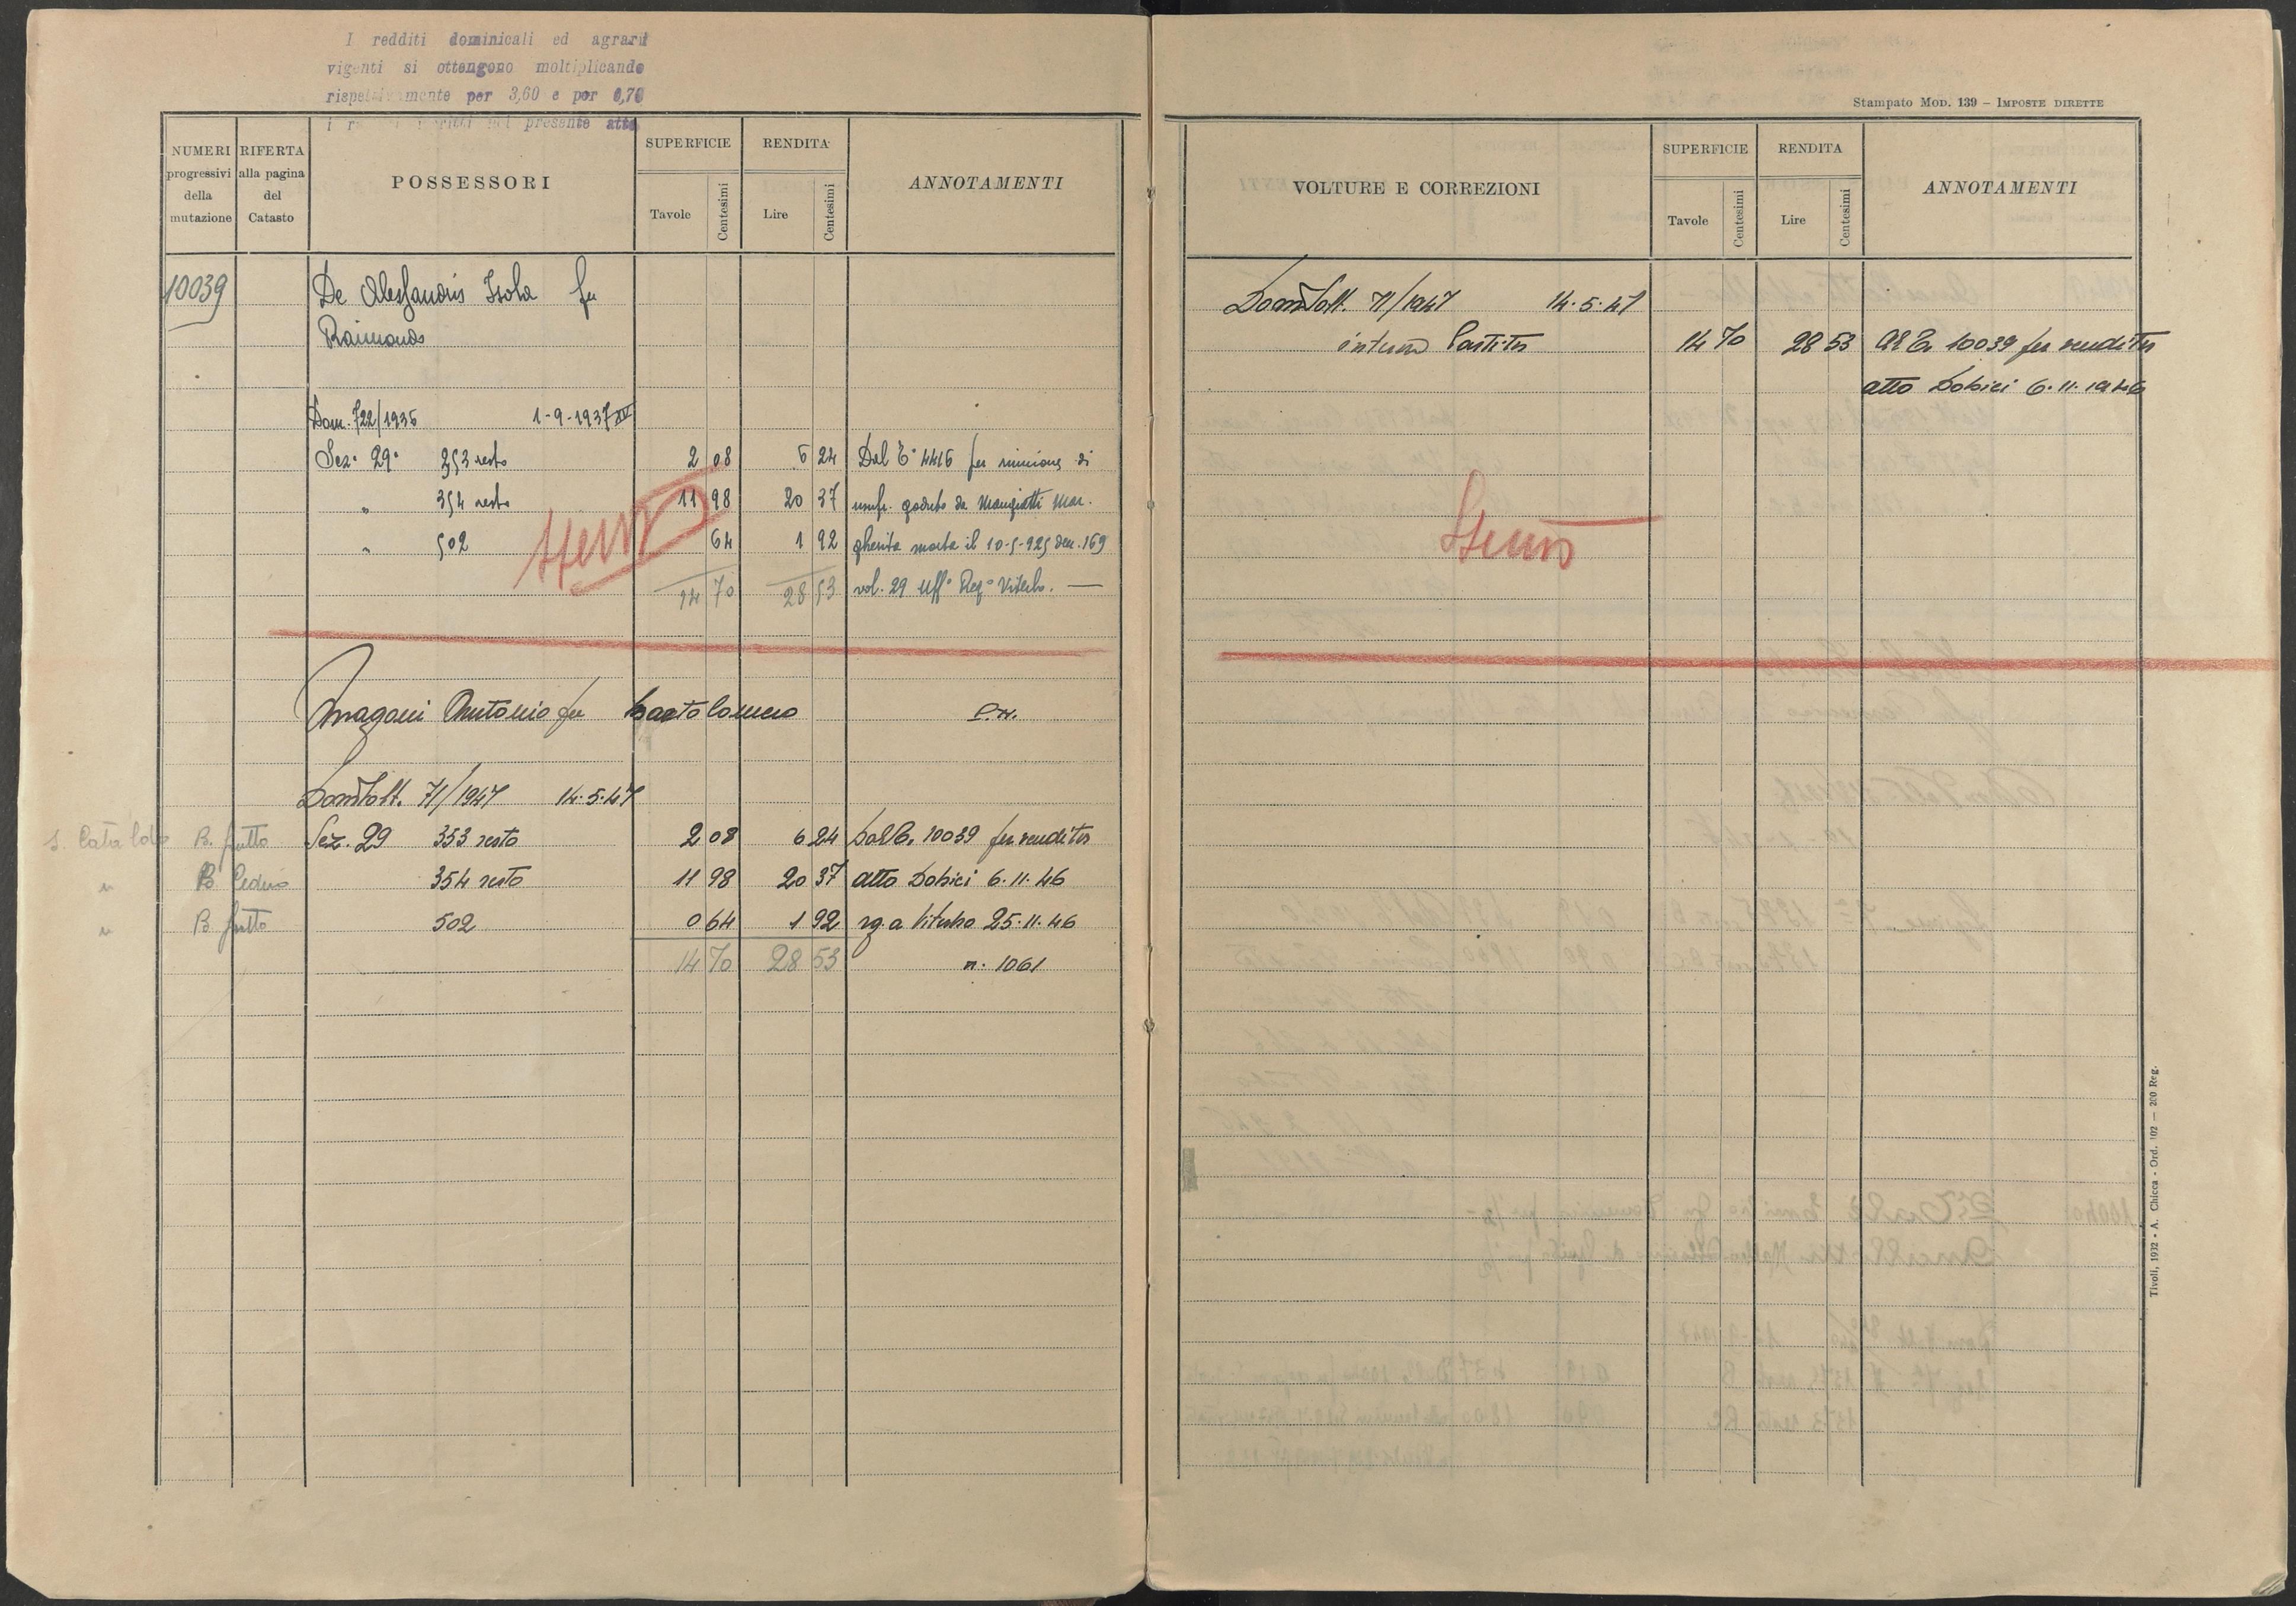 I redditi dominicali ed agrari
vigenti si ottengono moltiplicando
rispettivamente per 3,60 e per 0,70
i presente atto
NUMERI progressivi della mutazione
RIFERTA alla pagina del Catasto
POSSESSORI
SUPERFICIE
Tavole
Centesimi
RENDITA
Lire
Centesimi
ANNOTAMENTI
10039 De Alessandris Isola fu
Raimondo
Dom. 722/1936 1-9-1937 XV
Sez. 29ª 353 resto 2 08 6 24 Dal C° 4416 per riunione di
" 354 resto 11 98 20 37 usufr. goduto da Mangiatti Mar.
" 502 64 1 92 gherita morta il 10-5-925 den. 169
14 70 28 53 vol. 29 Uff° Reg° Viterbo. —
Magoni Antonio fu Bartolomeo
Dom Volt. 71/1947 14.5.47
S. Cataldo B. frutto Sez. 29 353 resto 2 08 6 24 Dal C. 10039 per vendita
" B Ceduo 354 resto 11 98 20 37 atto Dobici 6.11.46
" B frutto 502 0 64 1 92 rg. a Viterbo 25.11.46
14 70 28 53 n. 1061
Stampato Mod. 139 – Imposte dirette
VOLTURE E CORREZIONI
SUPERFICIE
Tavole
Centesimi
RENDITA
Lire
Centesimi
ANNOTAMENTI
Dom Volt. 71/1947 14.5.47
intera Partita 14 70 28 53 Al C. 10039 per vendita
atto Dobici 6.11.1946
Tivoli, 1932 - A. Chicca - Ord. 102 — 200 Reg.